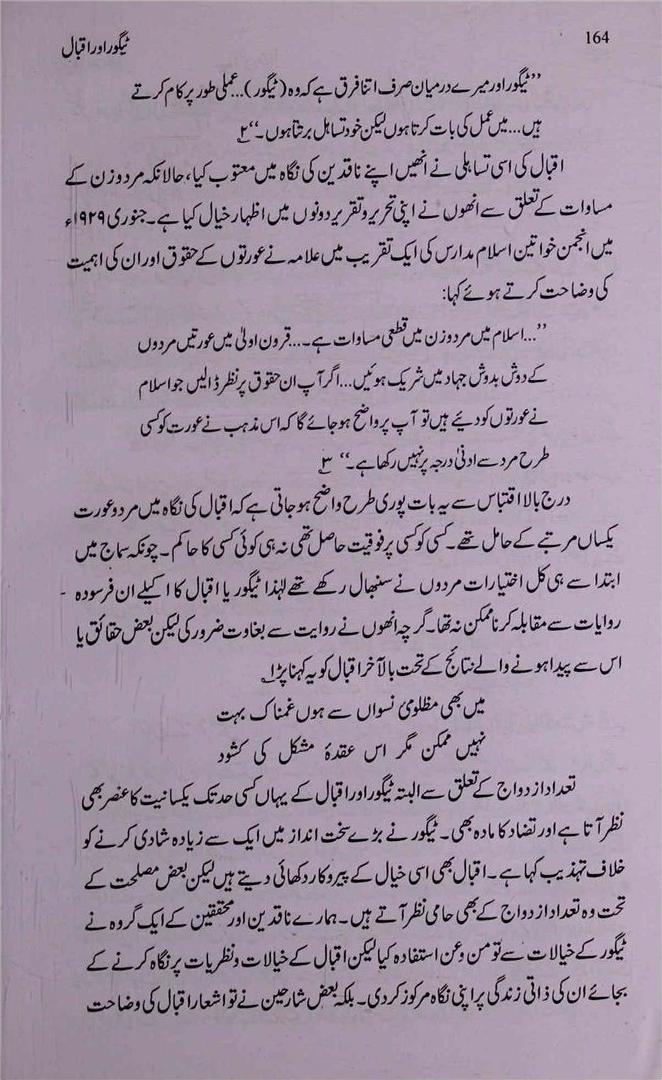 164
ٹیگور اور اقبال
’’ٹیگور اور میرے درمیان صرف اتنا فرق ہے کہ وہ (ٹیگور)...عملی طور پر کام کرتے
ہیں...میں عمل کی بات کرتا ہوں لیکن خود تساہل برتتا ہوں۔‘‘۲
اقبال کی اسی تساہلی نے انھیں اپنے ناقدین کی نگاہ میں معتوب کیا، حالانکہ مرد و زن کے
مساوات کے تعلق سے انھوں نے اپنی تحریر و تقریر دونوں میں اظہار خیال کیا ہے۔ جنوری ۱۹۲۹ء
میں انجمن خواتین اسلام مدارس کی ایک تقریب میں علامہ نے عورتوں کے حقوق اور ان کی اہمیت
کی وضاحت کرتے ہوئے کہا:
’’...اسلام میں مرد و زن میں قطعی مساوات ہے۔...قرون اولیٰ میں عورتیں مردوں
کے دوش بدوش جہاد میں شریک ہوئیں...اگر آپ ان حقوق پر نظر ڈالیں جو اسلام
نے عورتوں کو دیئے ہیں تو آپ پر واضح ہو جائے گا کہ اس مذہب نے عورت کو کسی
طرح مرد سے ادنیٰ درجہ پر نہیں رکھا ہے۔‘‘ ۳
درج بالا اقتباس سے یہ بات پوری طرح واضح ہو جاتی ہے کہ اقبال کی نگاہ میں مرد و عورت
یکساں مرتبے کے حامل تھے۔ کسی کو کسی پر فوقیت حاصل تھی نہ ہی کوئی کسی کا حاکم۔ چونکہ سماج میں
ابتدا سے ہی کل اختیارات مردوں نے سنبھال رکھے تھے لہٰذا ٹیگور یا اقبال کا اکیلے ان فرسودہ
روایات سے مقابلہ کرنا ممکن نہ تھا۔ گرچہ انھوں نے روایت سے بغاوت ضرور کی لیکن بعض حقائق یا
اس سے پیدا ہونے والے نتائج کے تحت بالآخر اقبال کو یہ کہنا پڑا
میں بھی مظلومیٔ نسواں سے ہوں غمناک بہت
نہیں ممکن مگر اس عقدۂ مشکل کی کشود
تعداد ازدواج کے تعلق سے البتہ ٹیگور اور اقبال کے یہاں کسی حد تک یکسانیت کا عنصر بھی
نظر آتا ہے اور تضاد کا مادہ بھی۔ ٹیگور نے بڑے سخت انداز میں ایک سے زیادہ شادی کرنے کو
خلاف تہذیب کہا ہے۔ اقبال بھی اسی خیال کے پیروکار دکھائی دیتے ہیں لیکن بعض مصلحت کے
تحت وہ تعداد ازدواج کے بھی حامی نظر آتے ہیں۔ ہمارے ناقدین اور محققین کے ایک گروہ نے
ٹیگور کے خیالات سے تو من و عن استفادہ کیا لیکن اقبال کے خیالات و نظریات پر نگاہ کرنے کے
بجائے ان کی ذاتی زندگی پر اپنی نگاہ مرکوز کر دی۔ بلکہ بعض شارحین نے تو اشعار اقبال کی وضاحت